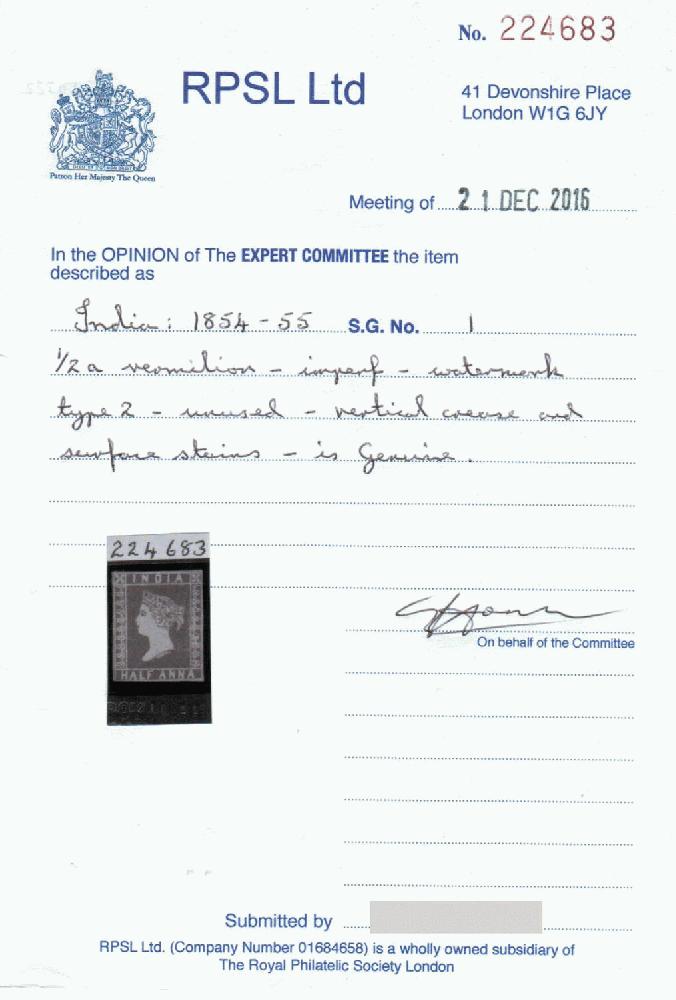 No. 224683
RPSL Ltd
41 Devonshire Place
London W1G 6JY
Patron Her Majesty The Queen
Meeting of 21 DEC 2016
In the OPINION of The EXPERT COMMITTEE the item
described as
India: 1854-55 S.G. No. 1
1/2 a vermilion - imperf - watermark
type 2 - unused - vertical crease and
surface stains - is Genuine.
224683
INDIA
HALF ANNA
On behalf of the Committee
Submitted by
RPSL Ltd. (Company Number 01684658) is a wholly owned subsidiary of
The Royal Philatelic Society London